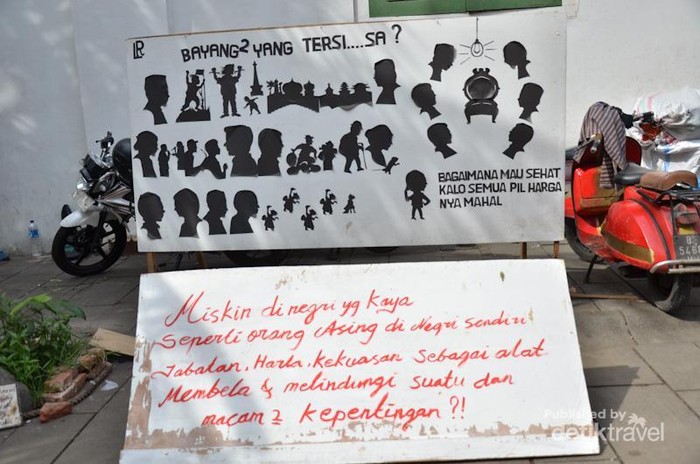 LR
BAYANG² YANG TERSI....SA ?
BAGAIMANA MAU SEHAT
KALO SEMUA PIL HARGA
NYA MAHAL
Miskin di negri yg kaya
Seperti orang Asing di Negri sendiri
Jabatan, Harta, Kekuasan Sebagai alat
Membela & melindungi suatu dan
macam 2 kepentingan ?!
Published by
detiktravel